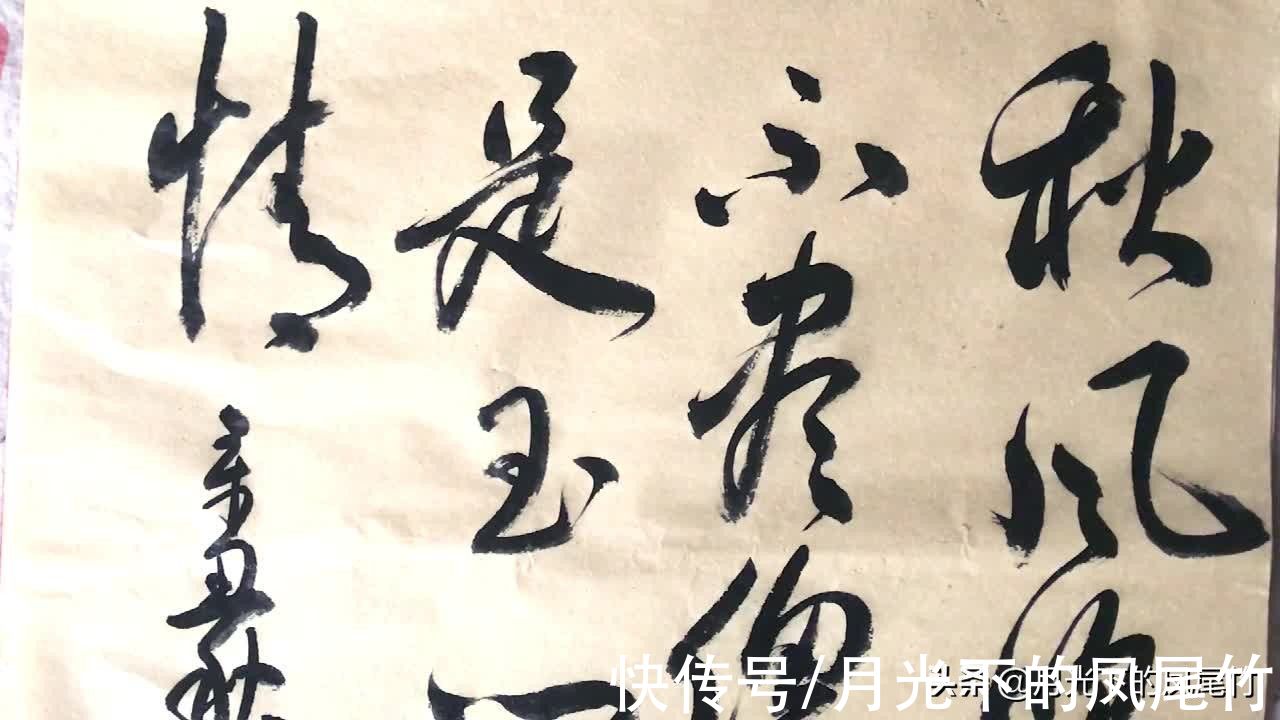 秋风
不尽
是玉
情
辛丑秋
快传号/月光下的凤尾竹
头条 @月光下的凤尾竹